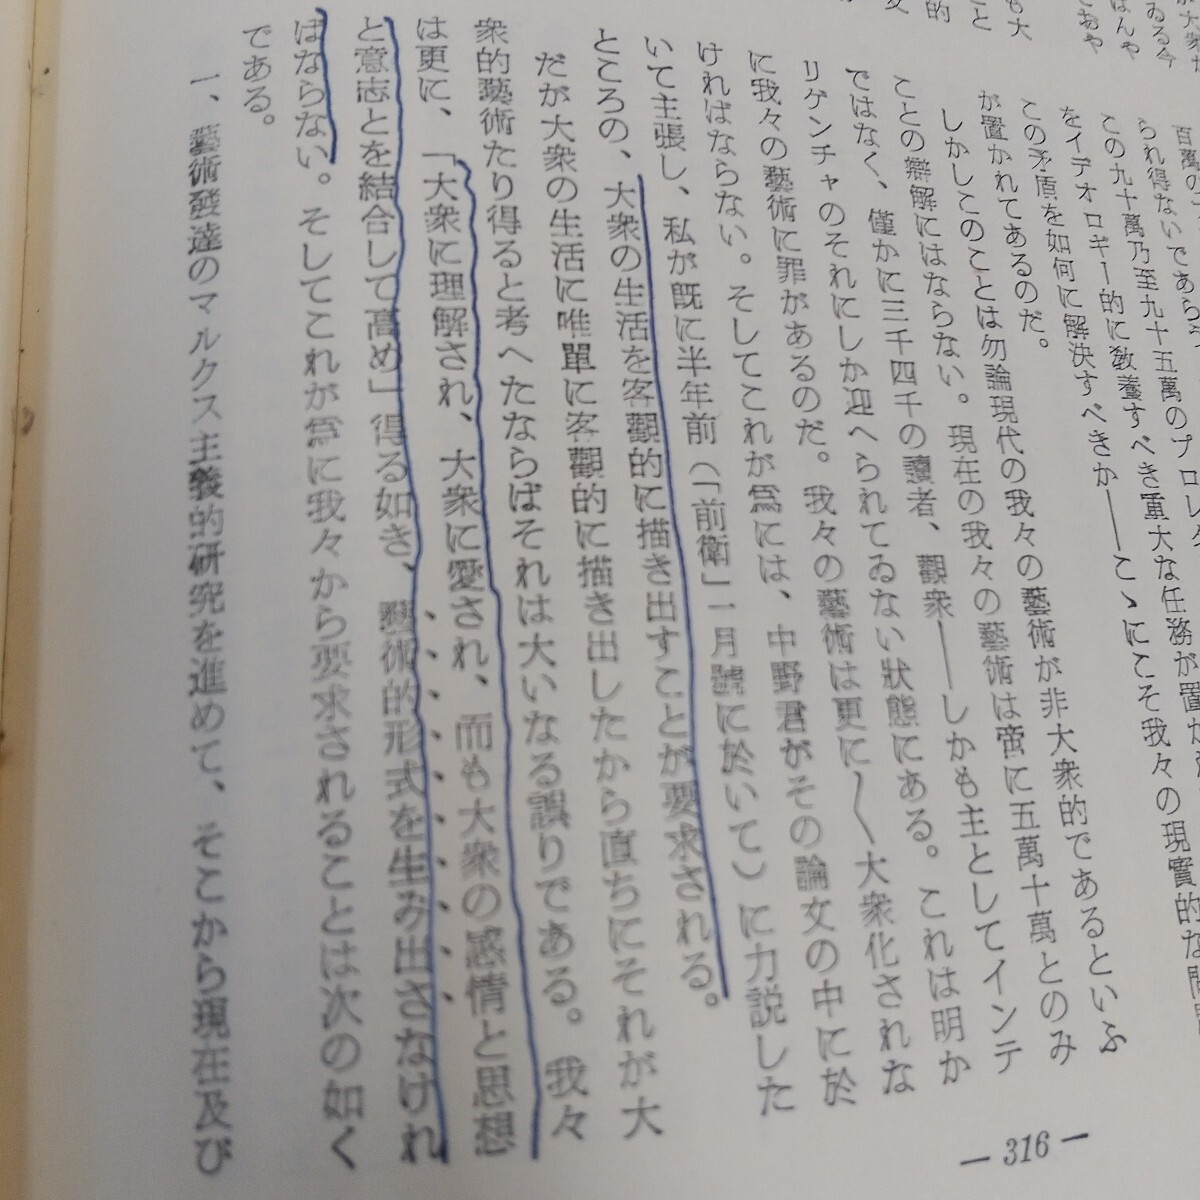 百萬の
られ得ないであらう
この九十萬乃至九十五萬のプロレタ
をイデオロギー的に教養すべき重大な任務が置か
この矛盾を如何に解決すべきか――こゝにこそ我々の現實的な問
が置かれてあるのだ。
しかしこのことは勿論現代の我々の藝術が非大衆的であるといふ
ことの辯解にはならない。現在の我々の藝術は啻に五萬十萬とのみ
ではなく、僅かに三千四千の讀者、觀衆――しかも主としてインテ
リゲンチャのそれにしか迎へられてゐない狀態にある。これは明か
に我々の藝術に罪があるのだ。我々の藝術は更に〳〵大衆化されな
ければならない。そしてこれが爲には、中野君がその論文の中に於
いて主張し、私が既に半年前（「前衛」一月號に於いて）に力説した
ところの、大衆の生活を客觀的に描き出すことが要求される。
だが大衆の生活に唯單に客觀的に描き出したから直ちにそれが大
衆的藝術たり得ると考へたならばそれは大いなる誤りである。我々
は更に、「大衆に理解され、大衆に愛され、而も大衆の感情と思想
と意志とを結合して高め」得る如き、藝術的形式を生み出さなけれ
ばならない。そしてこれが爲に我々から要求されることは次の如く
である。
一、藝術發達のマルクス主義的研究を進めて、そこから現在及び
― 316 ―